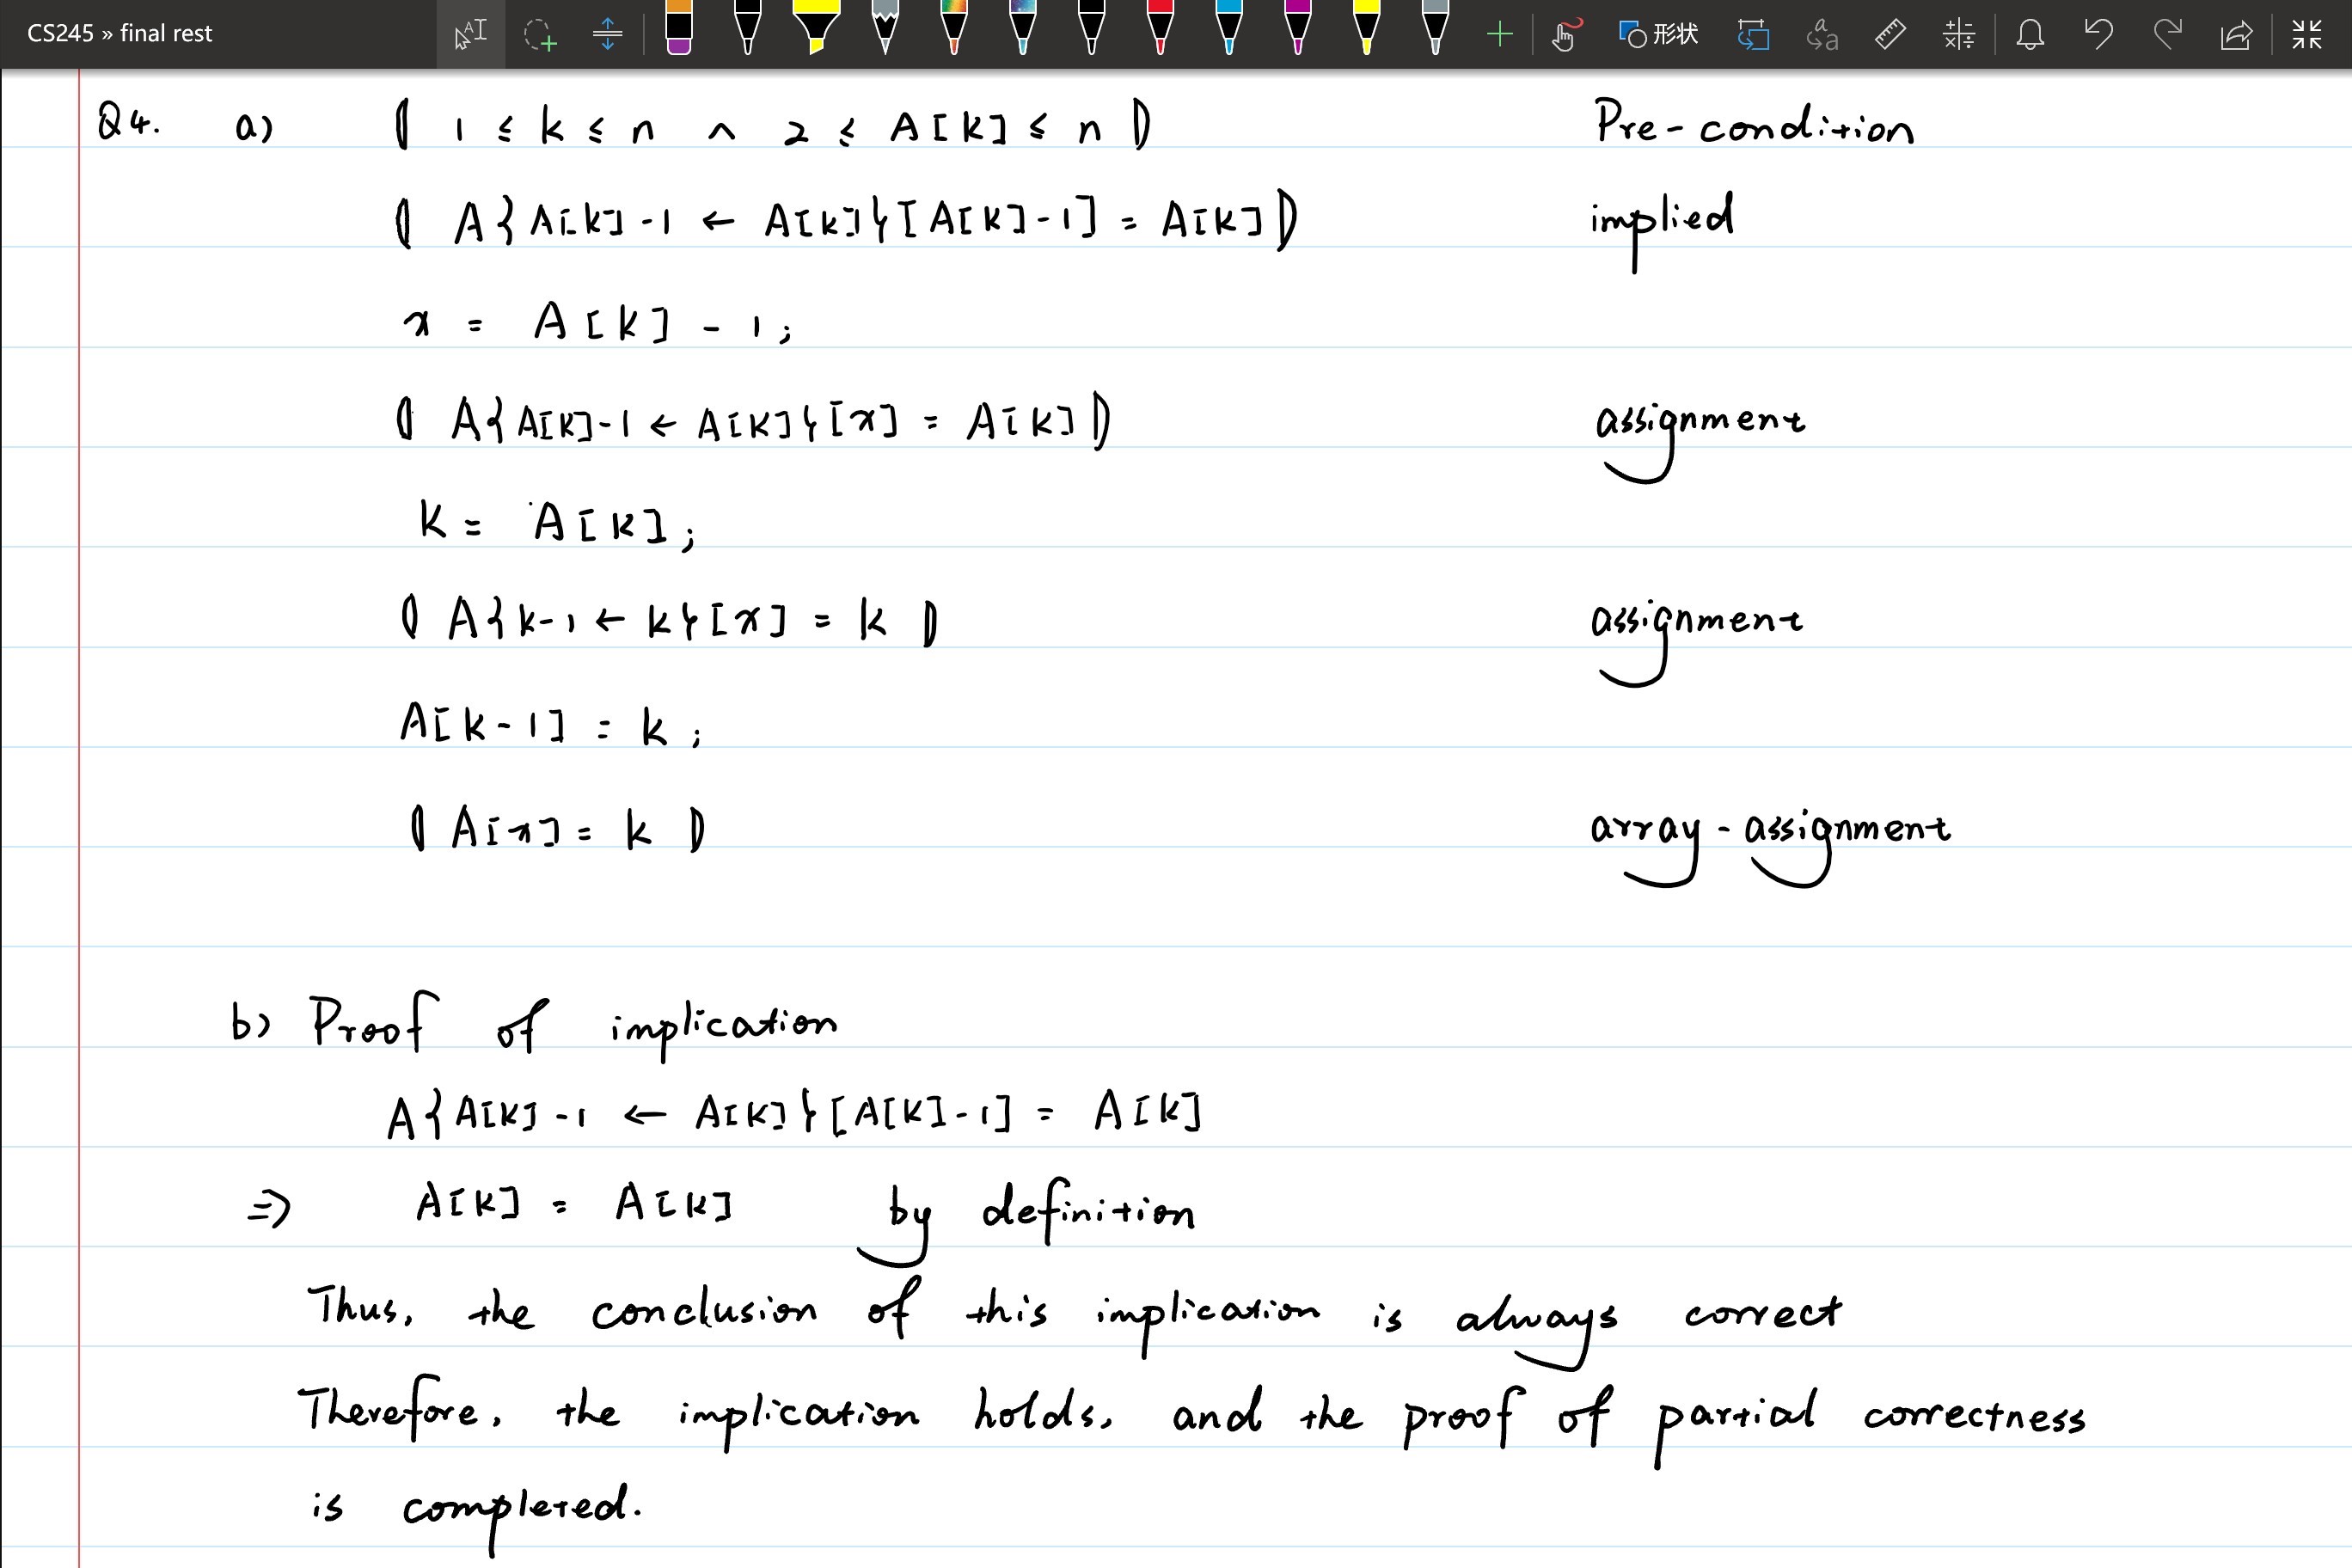 CS245 » final rest
形状
Q4. a) ⦇ 1 ≤ k ≤ n ∧ 2 ≤ A[k] ≤ n ⦈ Pre-condition
⦇ A{A[k]-1 ← A[k]}[A[k]-1] = A[k] ⦈ implied
x = A[k] - 1;
⦇ A{A[k]-1 ← A[k]}[x] = A[k] ⦈ assignment
k = A[k];
⦇ A{k-1 ← k}[x] = k ⦈ assignment
A[k-1] = k;
⦇ A[x] = k ⦈ array-assignment
b) Proof of implication
A{A[k]-1 ← A[k]}[A[k]-1] = A[k]
⇒ A[k] = A[k] by definition
Thus, the conclusion of this implication is always correct
Therefore, the implication holds, and the proof of partial correctness
is completed.